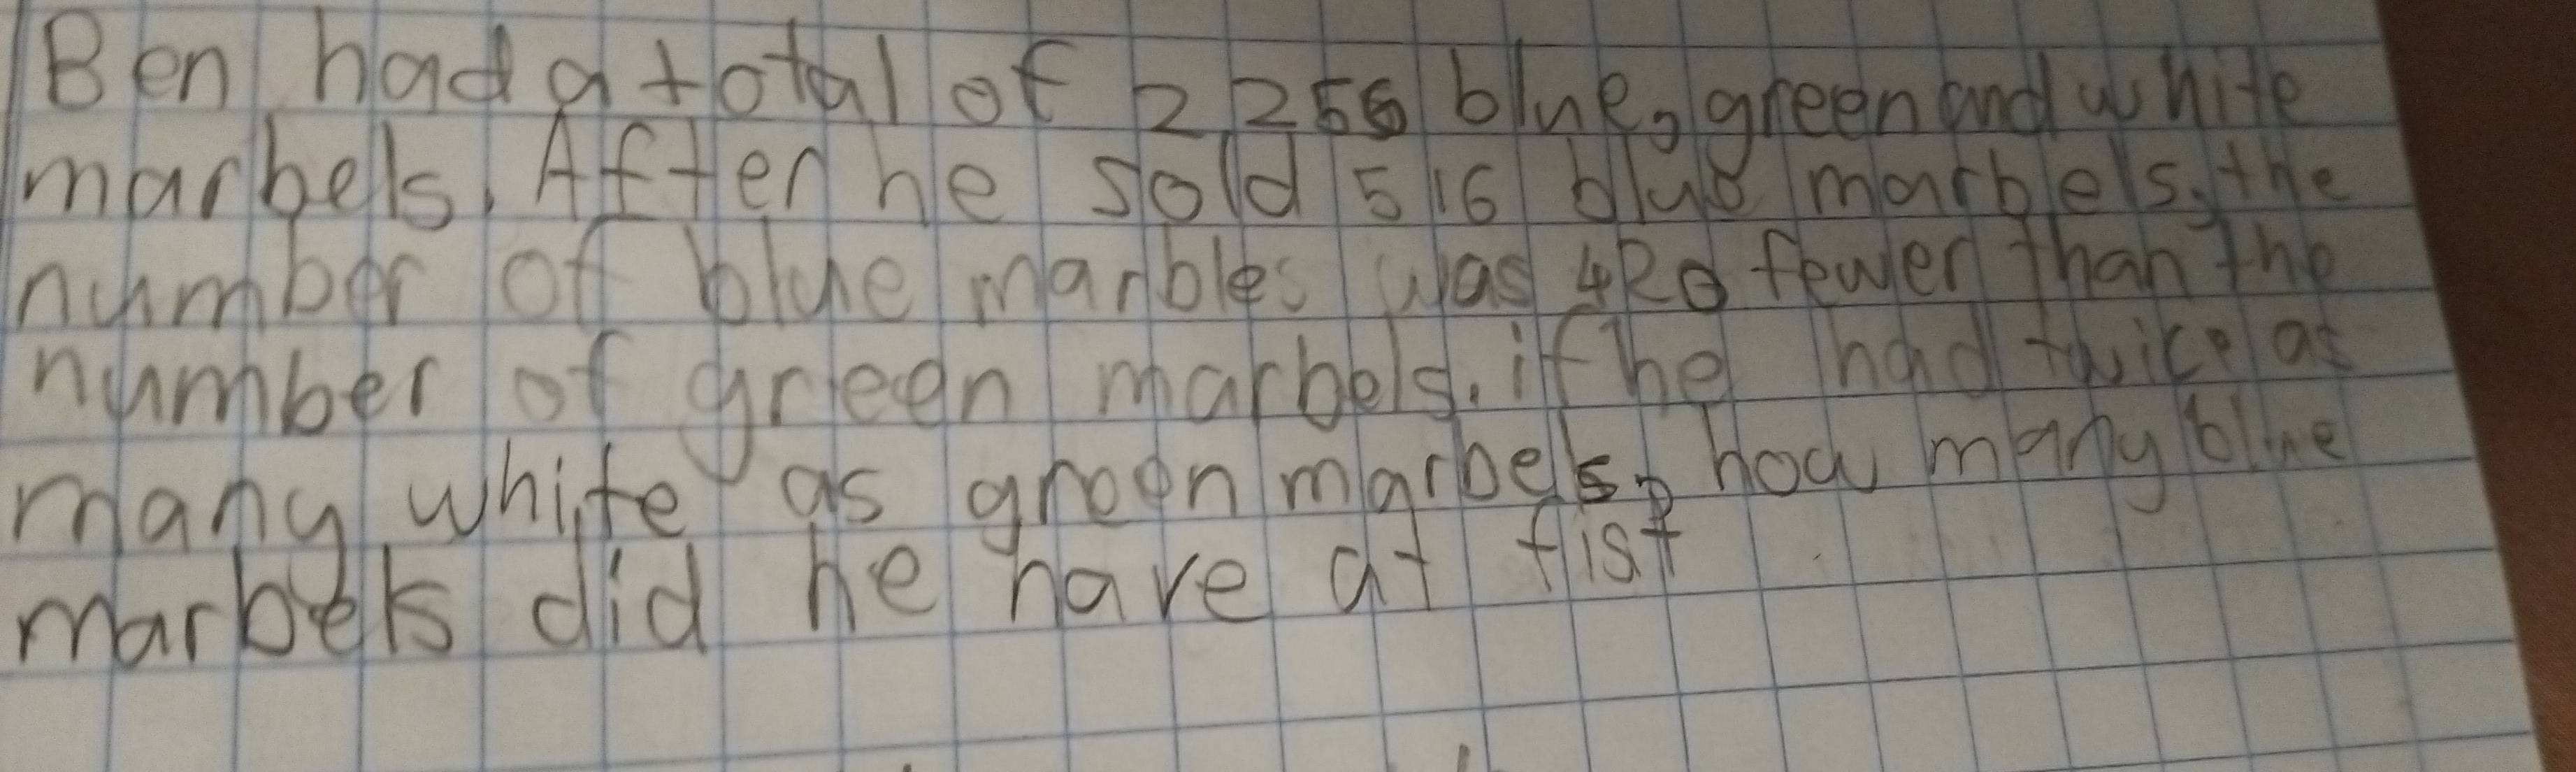 Ben had a total of 2256 blue, green and white
marbels. After he sold 516 blue marbels, the
number of blue marbles was 420 fewer than the
number of green marbels. if he had twice as
many white as green marbels, how many blue
marbels did he have at fist